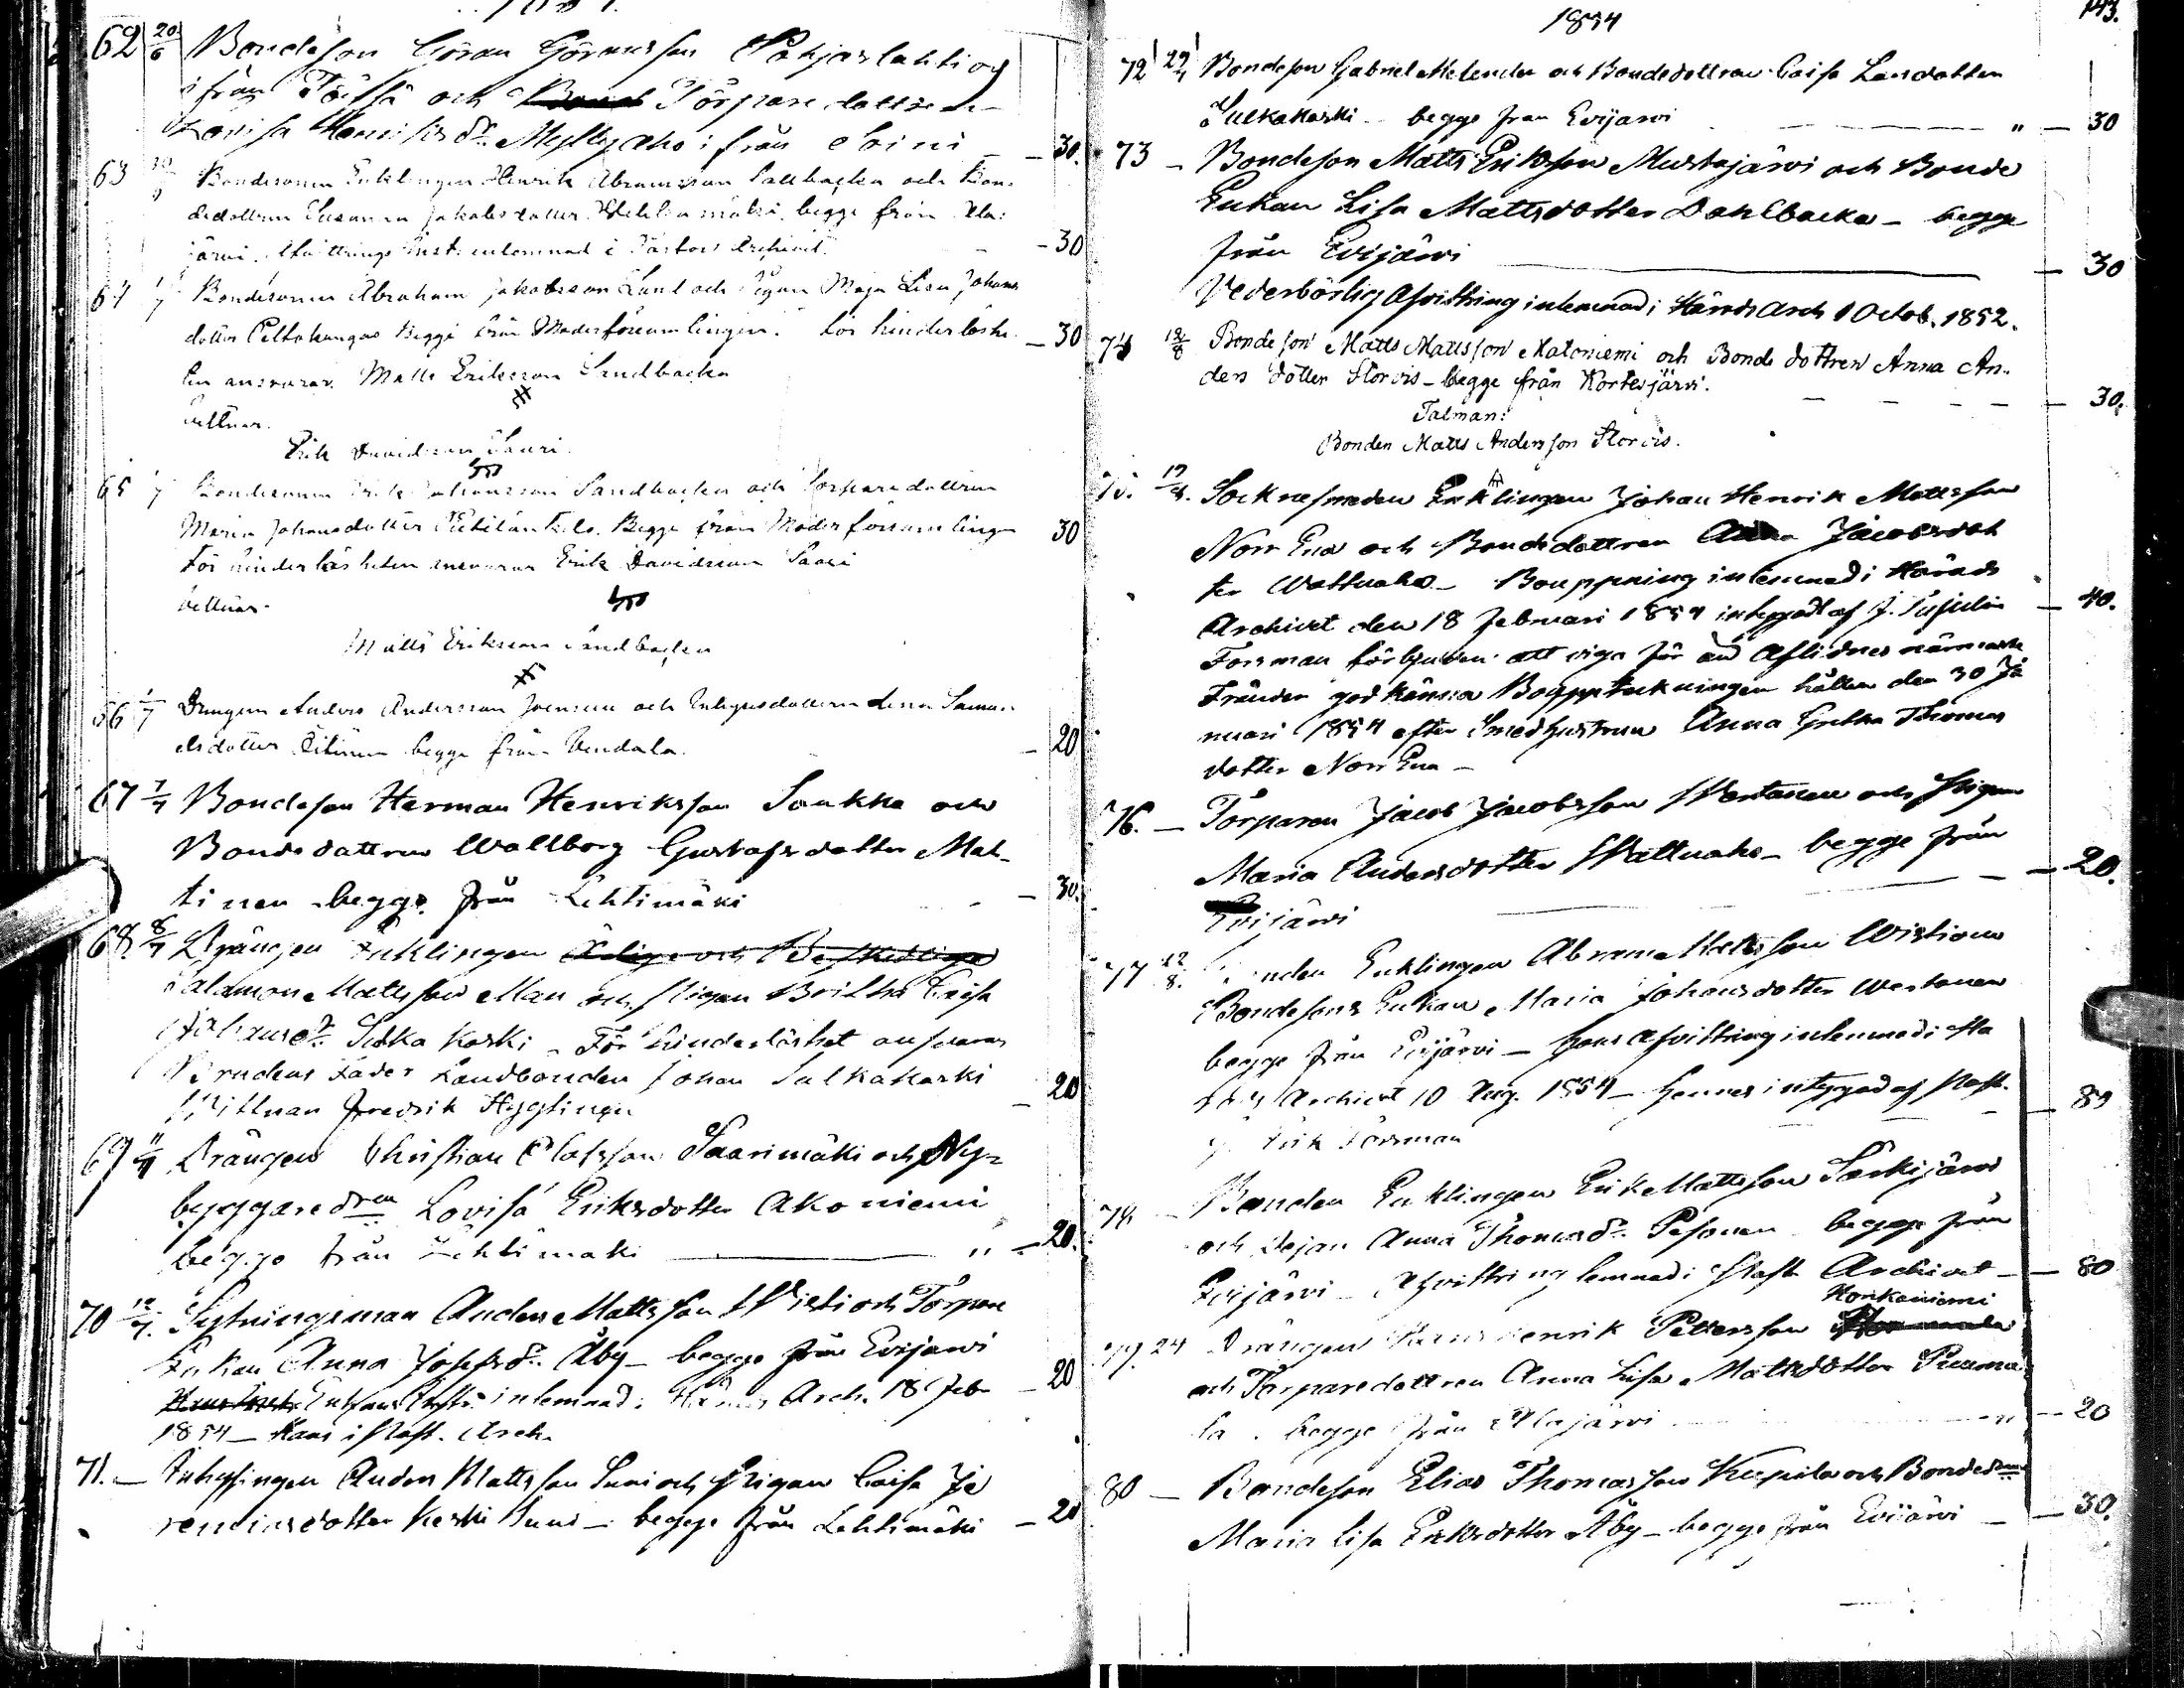 62 20/6 Bondeson Göran Göransson Pohjaslahti och
ifrån Töysä och Torpare dottren
Lovisa Henriksdr. Myllyaho ifrån Soini - 30.
63 Bondesonen Enklingen Henrik Abramsson Sallbacka och Bon-
dedottren Susanna Jakobsdotter begge från Ala-
järvi. Afvittrings Inst. inlemnad i Pastors Archivet. - 30
64 1/7 Bondesonen Abraham Jakobsson Lant och Pigan Maja Lisa Johans
dotter Peltokangas Begge från Moderförsamlingen. För hinderlöshe- - 30
ten ansvarar Matts Eriksson Sandbacka
Vittnar
Erik Davidsson Saari
65 1/7 Bondesonen Erik Johansson Sandbacka och Torparedottren
Maria Johansdotter Begge från Moderförsamlingen 30
För hinderlösheten ansvarar Erik Davidsson Saari
Vittnar
Matts Eriksson Sandbacka
66 1/7 Drengen Anders Andersson Joensuu och Inhysesdottren Lena Samu-
elsdotter begge från Vindala. - 20
67 7/7 Bondeson Herman Henriksson Soukka och
Bondedottren Wallborg Gustafsdotter Mat-
tinen - begge från Lehtimäki - 30.
68 8/7 Drängen Enklingen Ärlige och Beskedlige
Salamon Mattsson Man och Pigan Britha Caisa
Johansdr. Sulkakoski - För hinderlöshet ansvarar
Brudens Fader Landbonden Johan Sulkakoski - 20
Vittnar Fredrik Hyytinen
69 11/7 Drängen Christian Olofsson Saarimäki och Ny-
byggaredren Lovisa Eriksdotter Akoniemi
begge från Lehtimäki " - 20.
70 12/7. Sytningsman Anders Mattsson Wisti och Torpare
Enkan Anna Josefsdr. Åby - begge från Evijärvi
Enkans Afvittr. inlemnad i Härads Arch. 18 Feb - 20
1854 - Hans i Past. Arch.
71. - Inhysingen Anders Mattsson Suni och Pigan Caisa Je
remiasdotter Keski Suni - begge från Lehtimäki - 20
1854
143.
72 29/7 Bondeson Gabriel Melender och Bondedottren Caisa Larsdotter
Sulkakoski - begge från Evijärvi " - 30
73 - Bondeson Matts Eriksson Mustajärvi och Bonde
Enkan Lisa Mattsdotter Dahlbacka - begge
från Evijärvi - 30
Vederbörlig afvittring inlemnad i Härads Arch 1 Octob. 1852.
74 12/8 Bondeson Matts Mattsson Mataniemi och Bonde dottren Anna An-
ders dotter Storvis - begge från Kortesjärvi. - 30.
Talman:
Bonden Matts Andersson Storvis.
75. 12/8. Socknesmeden Enklingen Johan Henrik Mattsson
Norr Ena och Bondedottren Anna Jacobsdot
ter Wattuaho - Bouppning inlemnad i Härads
Archivet den 18 Februari 1854 intygadt af J. - 40.
Forsman förbjuden att viga för än aflidnes närmaste
Fränder godkänna Bouppteckningen hållen den 30 Ja
nuari 1854 efter Smedhustrun Anna Gretha Thomas
dotter Norr Ena -
76. - Torparen Jacob Jacobsson Wertanen och Pigan
Maria Andersdotter Wattuaho - begge från - 20.
Evijärvi
77 12/8. Bonden Enklingen Abram Mattsson Wistiaho
Bondesons Enkan Maria Johansdotter Wertanen
begge från Evijärvi - hans afvittring inlemnad i Hä
rads Archivet 10 Aug. 1854 - Hennes intygad af Past.
Erik Forsman - 80
78 - Bonden Enklingen Erik Mattsson Särkijärvi
och Pejan Anna Thomasdr. Pesonen begge från
Evijärvi - Afvittring lemnad i Past. Archivet - 80
Honkaniemi
79. 24 Drängen Hans Henrik Pettersson
och Torparedottren Anna Lisa Mattsdotter Purma
la - begge från Alajärvi " - 20
80 - Bondeson Elias Thomasson Kupila och Bondedren
Maria Lisa Eriksdotter Åby - begge från Evijärvi - 30.